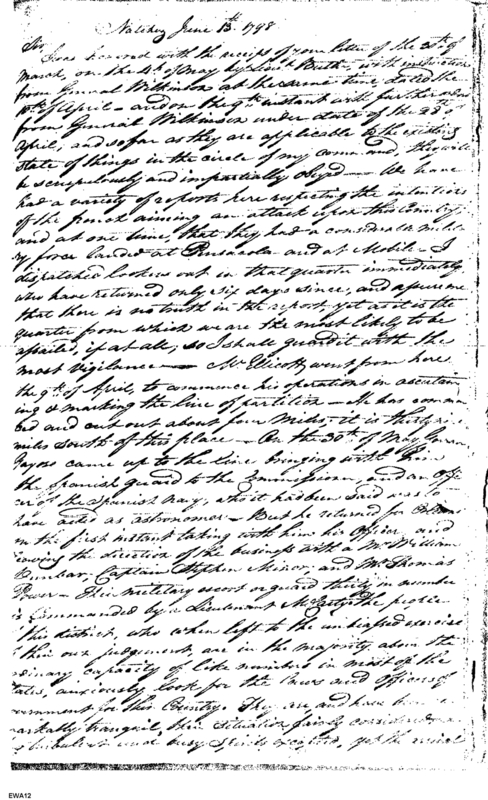 Natchez June 13th 1798
Sir
I was honored with the receipt of your letter of the 20th of
March, on the 4th of May by Lieut. with instructions
from General Wilkinson at the same time dated the
10th of April - and on the 9th instant with further orders
from General Wilkinson under date of the 23d of
April, and so far as they are applicable to the existing
state of things in the circle of my command they will
be scrupulously and impartially obeyed - We have
had a variety of reports here respecting the intentions
of the french aiming an attack upon this Country,
and at one time, that they had a considerable milita
ry force landed at Pensacola and at Mobile - I
dispatched lookers out in that quarter immediately
who have returned only six days since, and assure me
that there is no truth in the report, yet as it is the
quarter from which we are the most likely to be
assailed, if at all; so I shall guard it with the
most vigilance - Mr. Ellicott went from here
the 9th of April, to commence his operations in ascertain
ing & marking the line of partition - He has commen
ced and cut out about four miles; it is thirty
miles South of this place - On the 30th of May Governor
Gayoso came up to the line bringing with him
the Spanish guard to the Commissioner, and an Offi
cer of the Spanish Navy, who it had been said was to
have acted as astronomer - But he returned for
on the first instant taking with him his Officer, and
leaving the direction of the business with a Mr. William
Dunbar, Captain Stephen Minor, and Mr. Thomas
Power - This military escort or guard thirty in number
is Commanded by a Lieutenant McCarty. The people
of this district, who when left to the unbiassed exercise
of their own judgement, are in the majority above the
ordinary capacity of like numbers in most of the
States, anxiously look for the laws and Officers of
Government for this Country. They are and have been
remarkably tranquil, their situation fairly considered
busy Spirits excepted, yet the
EWA12